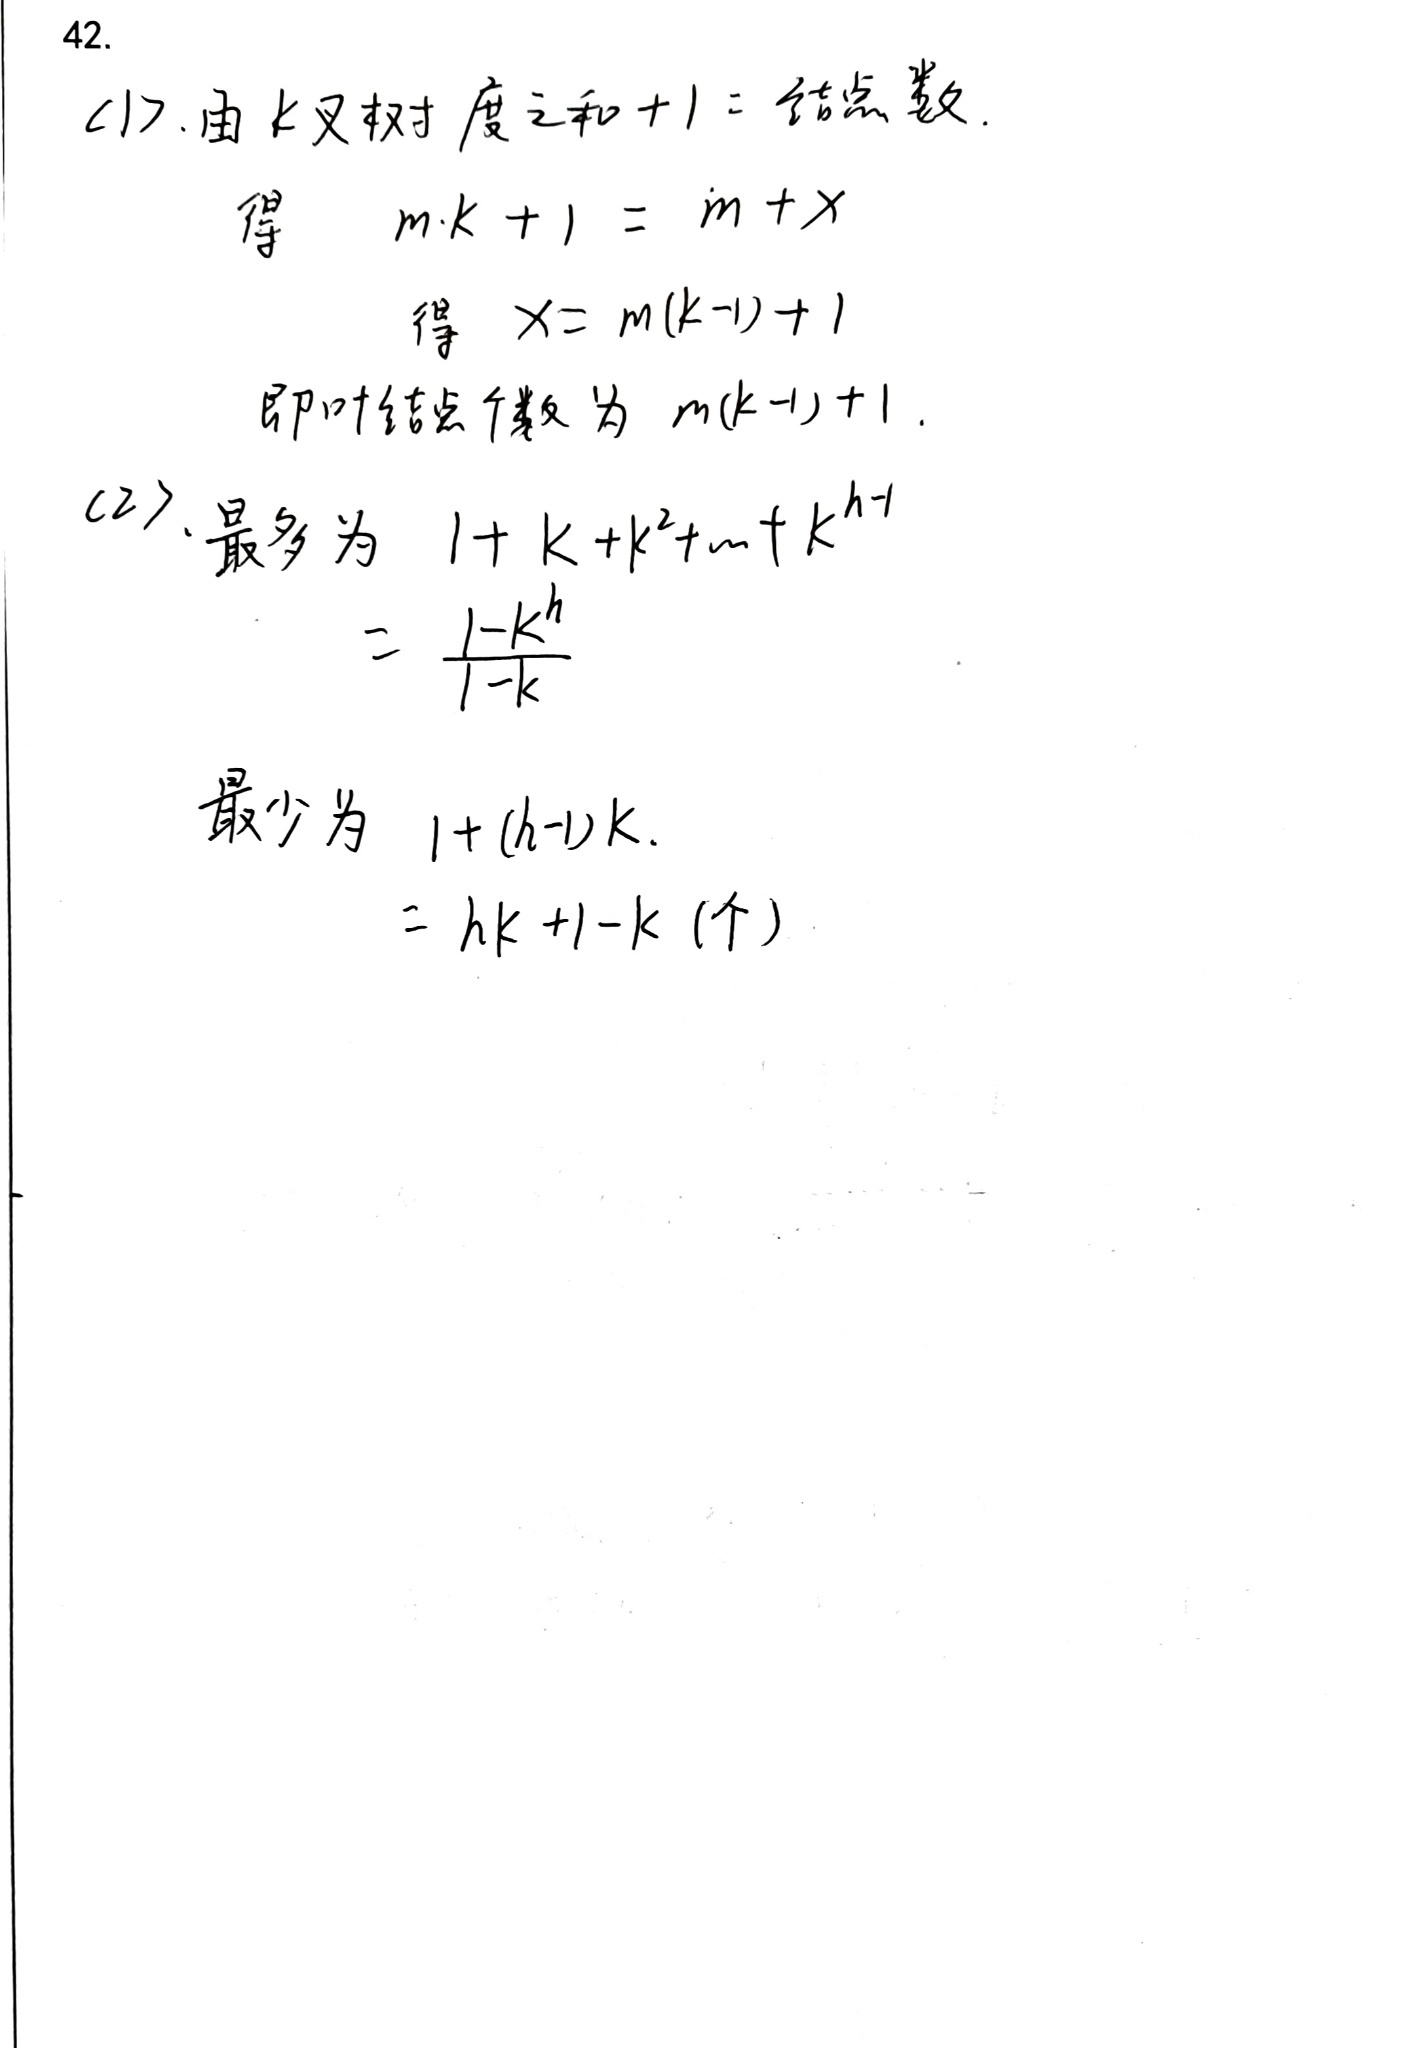 42.
(1).由k叉树度之和+1=结点数.
得 m·k+1=m+x
得 x=m(k-1)+1
即叶结点个数为 m(k-1)+1.
(2).最多为 1+k+k²+…+k^{h-1}
= \frac{1-k^h}{1-k}
最少为 1+(h-1)k.
= hk+1-k (个)